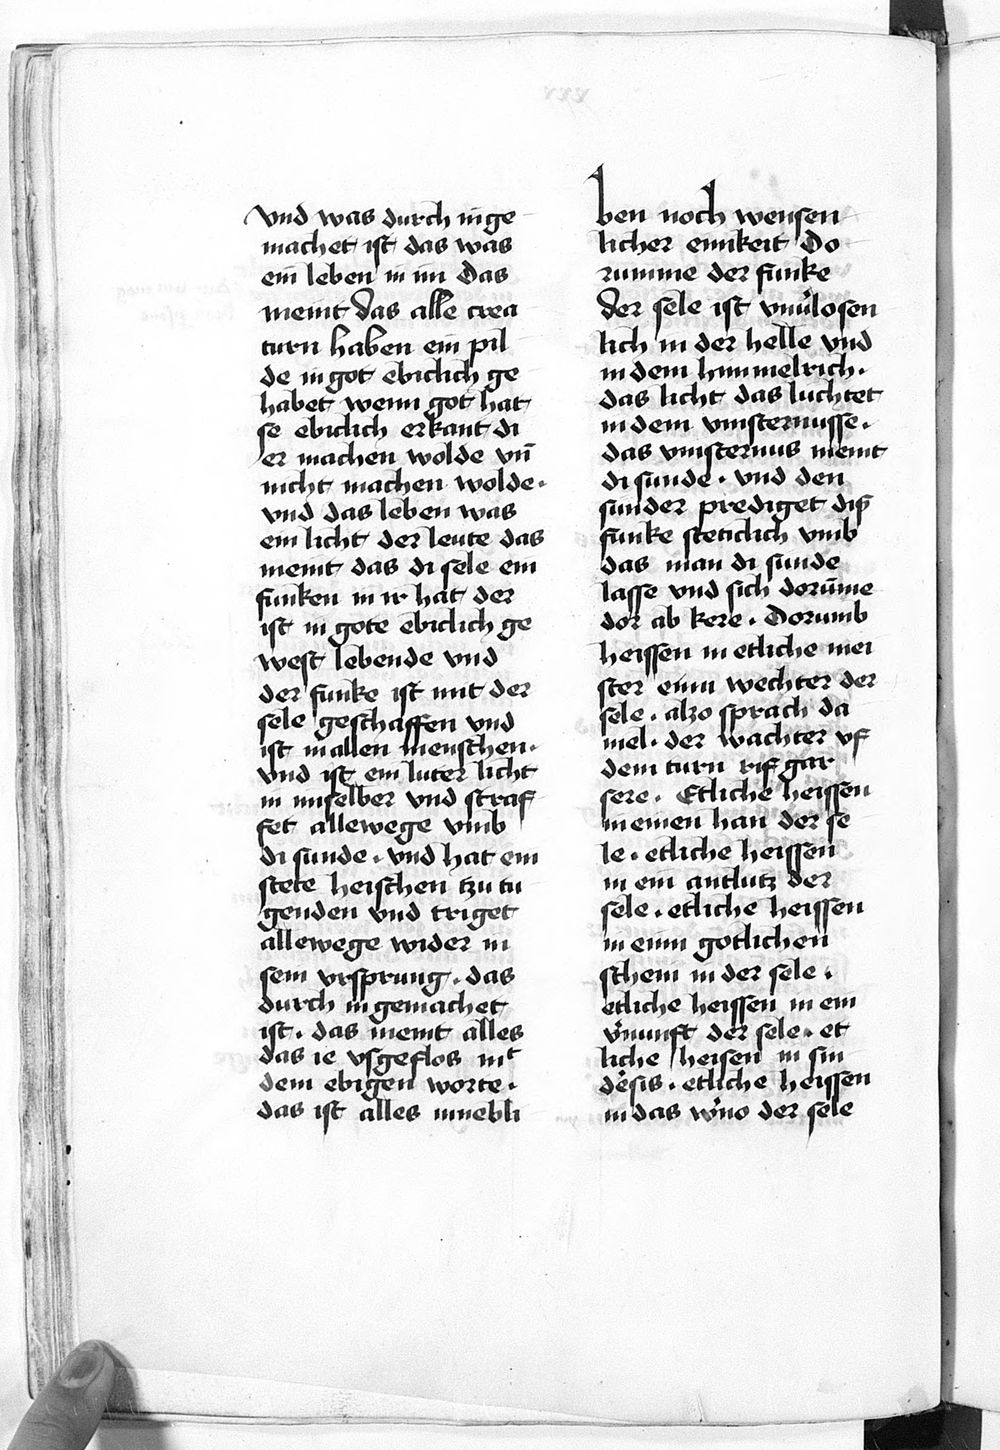 vnd was durch in ge
machet ist das was
ein leben in im Das
meint das alle crea
turn haben ein pil
de in got ebiclich ge
habet wenn got hat
se ebiclich erkant di
er machen wolde vn̄
nicht machen wolde.
vnd das leben was
ein licht der leute das
meint das di sele ein
funken in ir hat der
ist in gote ebiclich ge
west lebende vnd
der funke ist mit der
sele geschaffen vnd
ist in allen menschen.
vnd ist ein luter licht
in im selber vnd straf
fet allewege vmb
di sunde. vnd hat ein
stete heischen tzu tu
genden vnd criget
allewege wider in
sein vrsprung. das
durch in gemachet
ist. das meint alles
das ie vsgeflos mit
dem ebigen worte.
das ist alles inuebli
ben noch wensen
licher einikeit Do
rumme der funke
der sele ist vnuͦlosen
lich in der helle vnd
in dem himmelrich.
das licht das luchtet
in dem vinsternusse.
das vinsternus meint
di sunde. vnd den
sunder prediget dis̄
funke steticlich vmb
das man di sunde
lasse vnd sich dorūme
dor ab kere. Dorumb
heissen in etliche mei
ster einn wechter der
sele. also sprach da
niel. der wachter vf
dem turn rif gar
sere. Etliche heissen
in einen han der se
le. etliche heissen
in ein antlutz der
sele. etliche heissen
in einn gotlichen
schein in der sele.
etliche heissen in ein
v'nunft der sele. et
liche heisen in sin
desis. etliche heissen
in das w'uo der sele